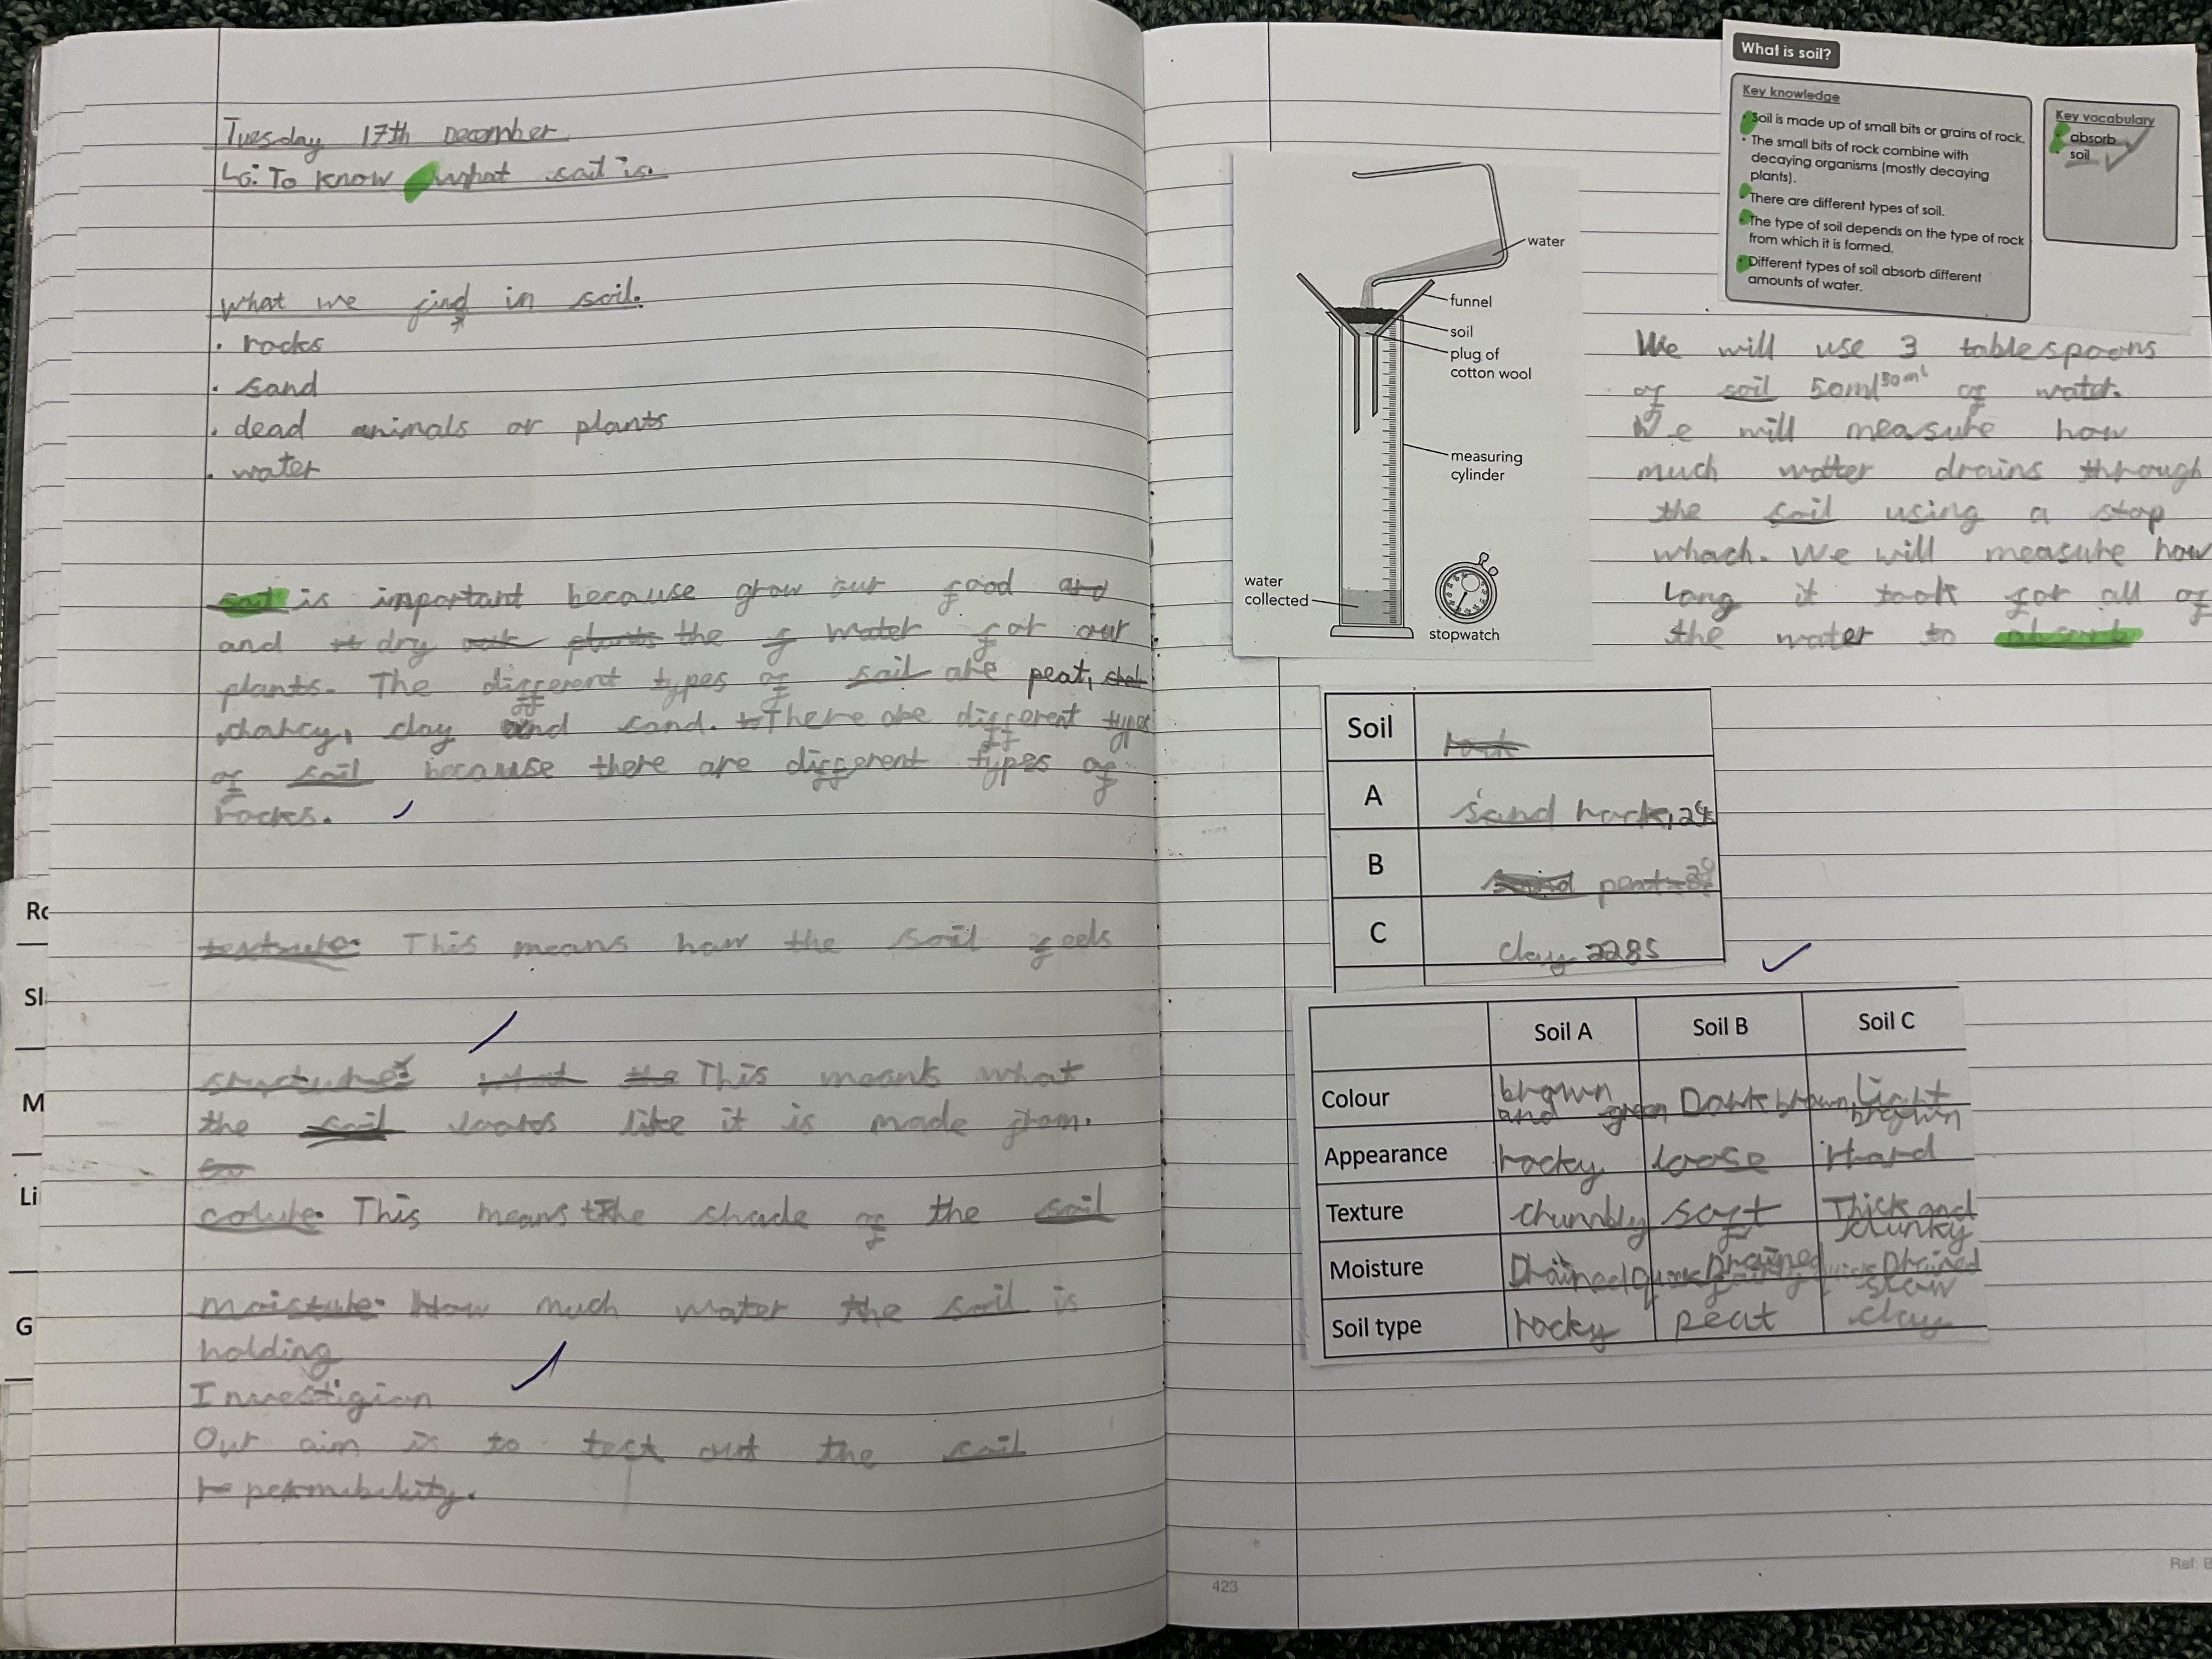 Tuesday 17th December
LO: To know what soil is.
What we find in soil.
· rocks
· sand
· dead animals or plants
· water
soil is important because grow our food and
and dry the water for our
plants. The different types of soil are peat,
chalcy, clay and sand. There are different types
of soil because there are different types of
rocks.
texture: This means how the soil feels
structure: This means what
the soil looks like it is made from.
colure: This means the shade of the soil
moisture: How much water the soil is
holding
Investigian
Our aim is to test out the soil
permibility.
Ro
Sl
M
Li
G
What is soil?
Key knowledge
· Soil is made up of small bits or grains of rock.
· The small bits of rock combine with
decaying organisms (mostly decaying
plants).
· There are different types of soil.
· The type of soil depends on the type of rock
from which it is formed.
· Different types of soil absorb different
amounts of water.
Key vocabulary
· absorb
· soil
water
funnel
soil
plug of
cotton wool
measuring
cylinder
water
collected
stopwatch
We will use 3 tablespoons
of soil 50ml 50ml of water.
We will measure how
much watter drains through
the soil using a stop
whach. We will measure how
long it took for all of
the water to absorb
Soil
A sand rock,
B peat
C clay 228s
Soil A Soil B Soil C
Colour brown and green Dark brown light brown
Appearance rocky loose Hard
Texture chumbly soft Thick and clunky
Moisture Drained quick Drained Drained slow
Soil type rocky peat clay
423
Ref: B